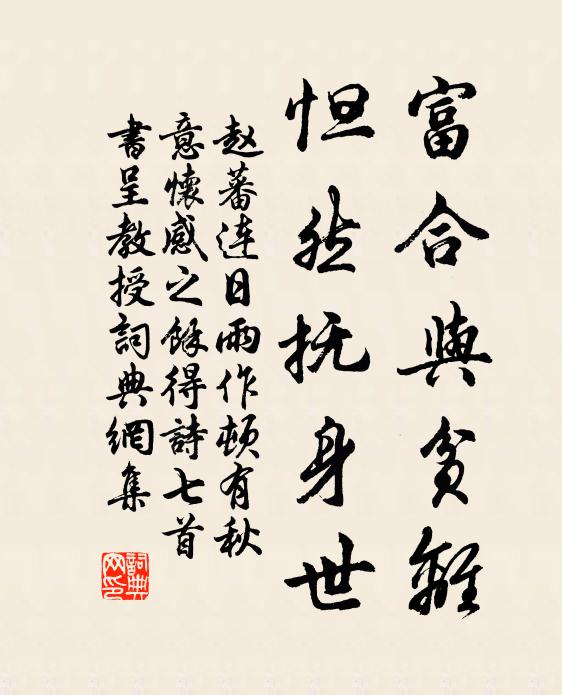 富合與貧離
怛然抚身世
赵蕃连日雨作頓有秋
意懷感之餘得詩七首
書呈教授詞典網集
詞典网印